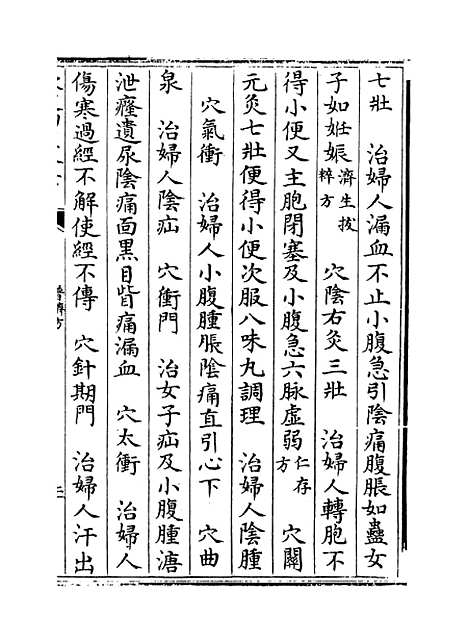 七壯　治婦人漏血不止小腹急引陰痛腹脹如蠱女
子如姙娠濟生拔粹方　穴陰右灸三壯　治婦人轉胞不
得小便又主胞閉塞及小腹急六脉虚弱仁存方　穴關
元灸七壯便得小便次服八味丸調理　治婦人陰腫
穴氣衝　治婦人小腹腫脹陰痛直引心下　穴曲
泉　治婦人陰疝　穴衝門　治女子疝及小腹腫溏
泄癃遺尿陰痛面黑目眥痛漏血　穴太衝　治婦人
傷寒過經不解使經不傳　穴針期門　治婦人汗出
普濟方